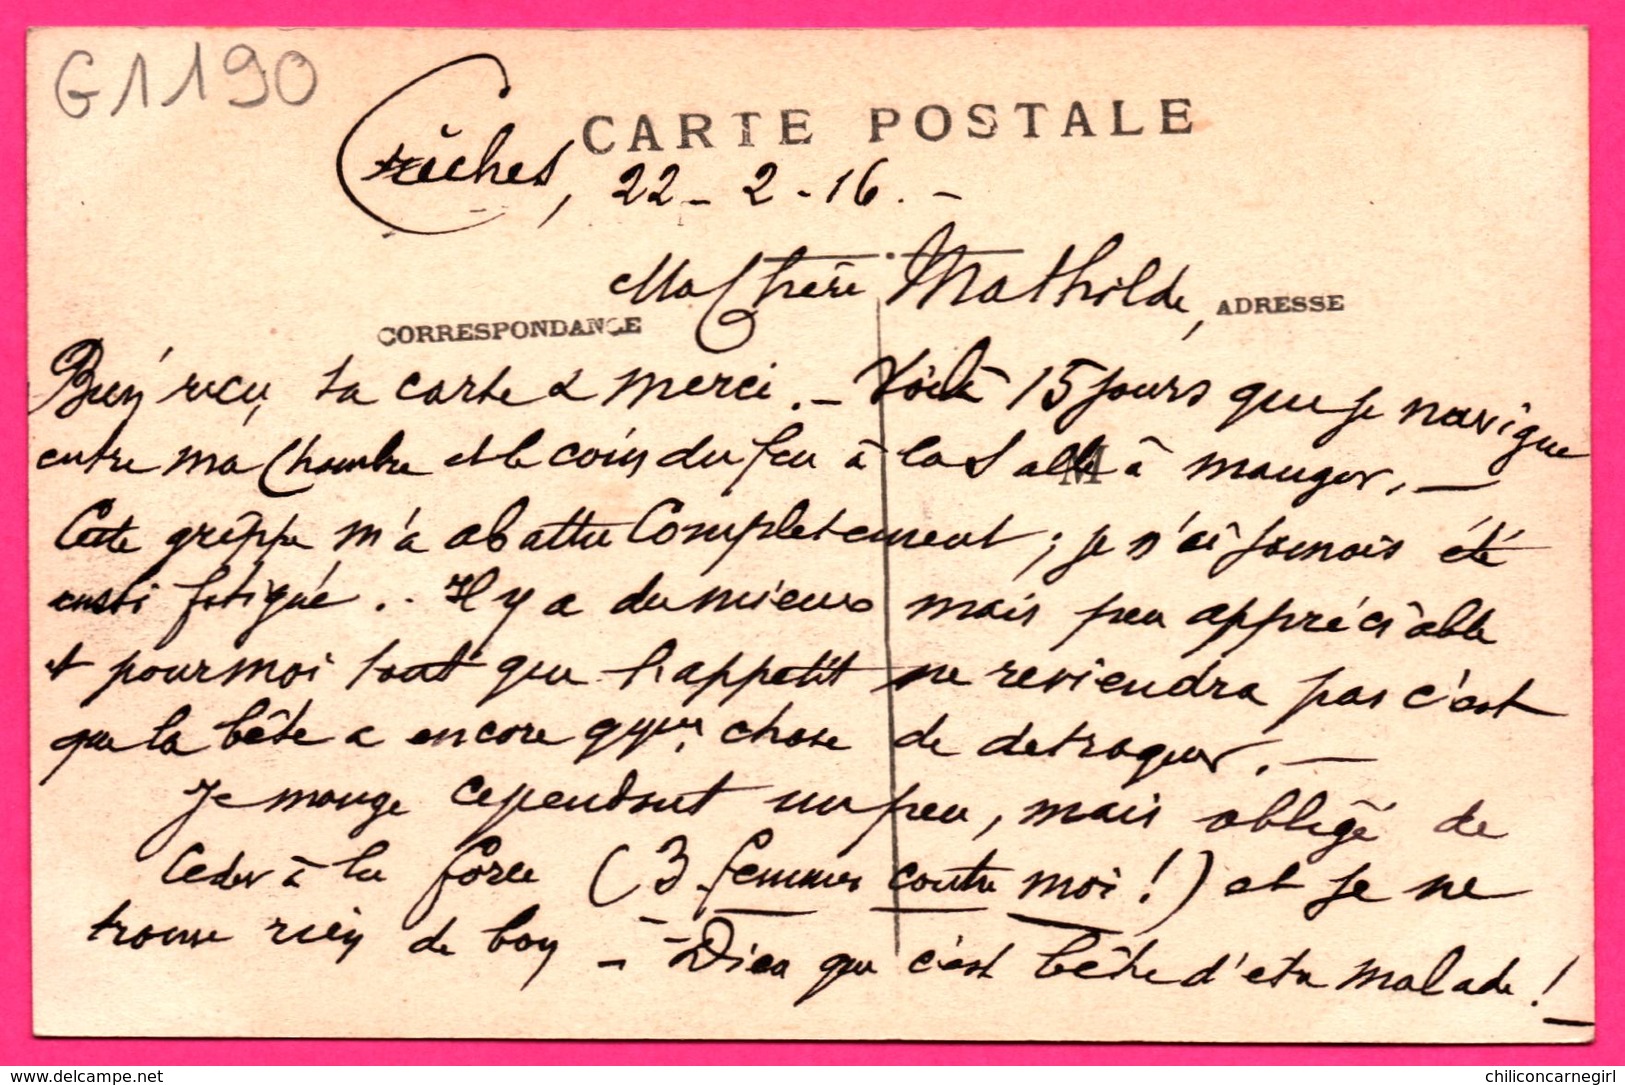 G1190
CARTE POSTALE
Crêches, 22-2-16.-
Ma Chère Mathilde,
CORRESPONDANCE
ADRESSE
Bien reçu ta carte & merci. - Voilà 15 jours que je navigue
entre ma Chambre et le coin du feu à la Salle à manger. -
M
Cette grippe m'a abattu Complètement; je n'ai jamais été
aussi fatigué.. Il y a du mieux mais peu appréciable
et pour moi tant que l'appétit ne reviendra pas c'est
que la bête a encore qque chose de détraquer. -
Je mange cependant un peu, mais obligé de
Ceder à la force (3 femmes contre moi!) et je ne
trouve rien de bon - - Dieu que c'est bête d'être malade!
www.delcampe.net
chiliconcarnegirl